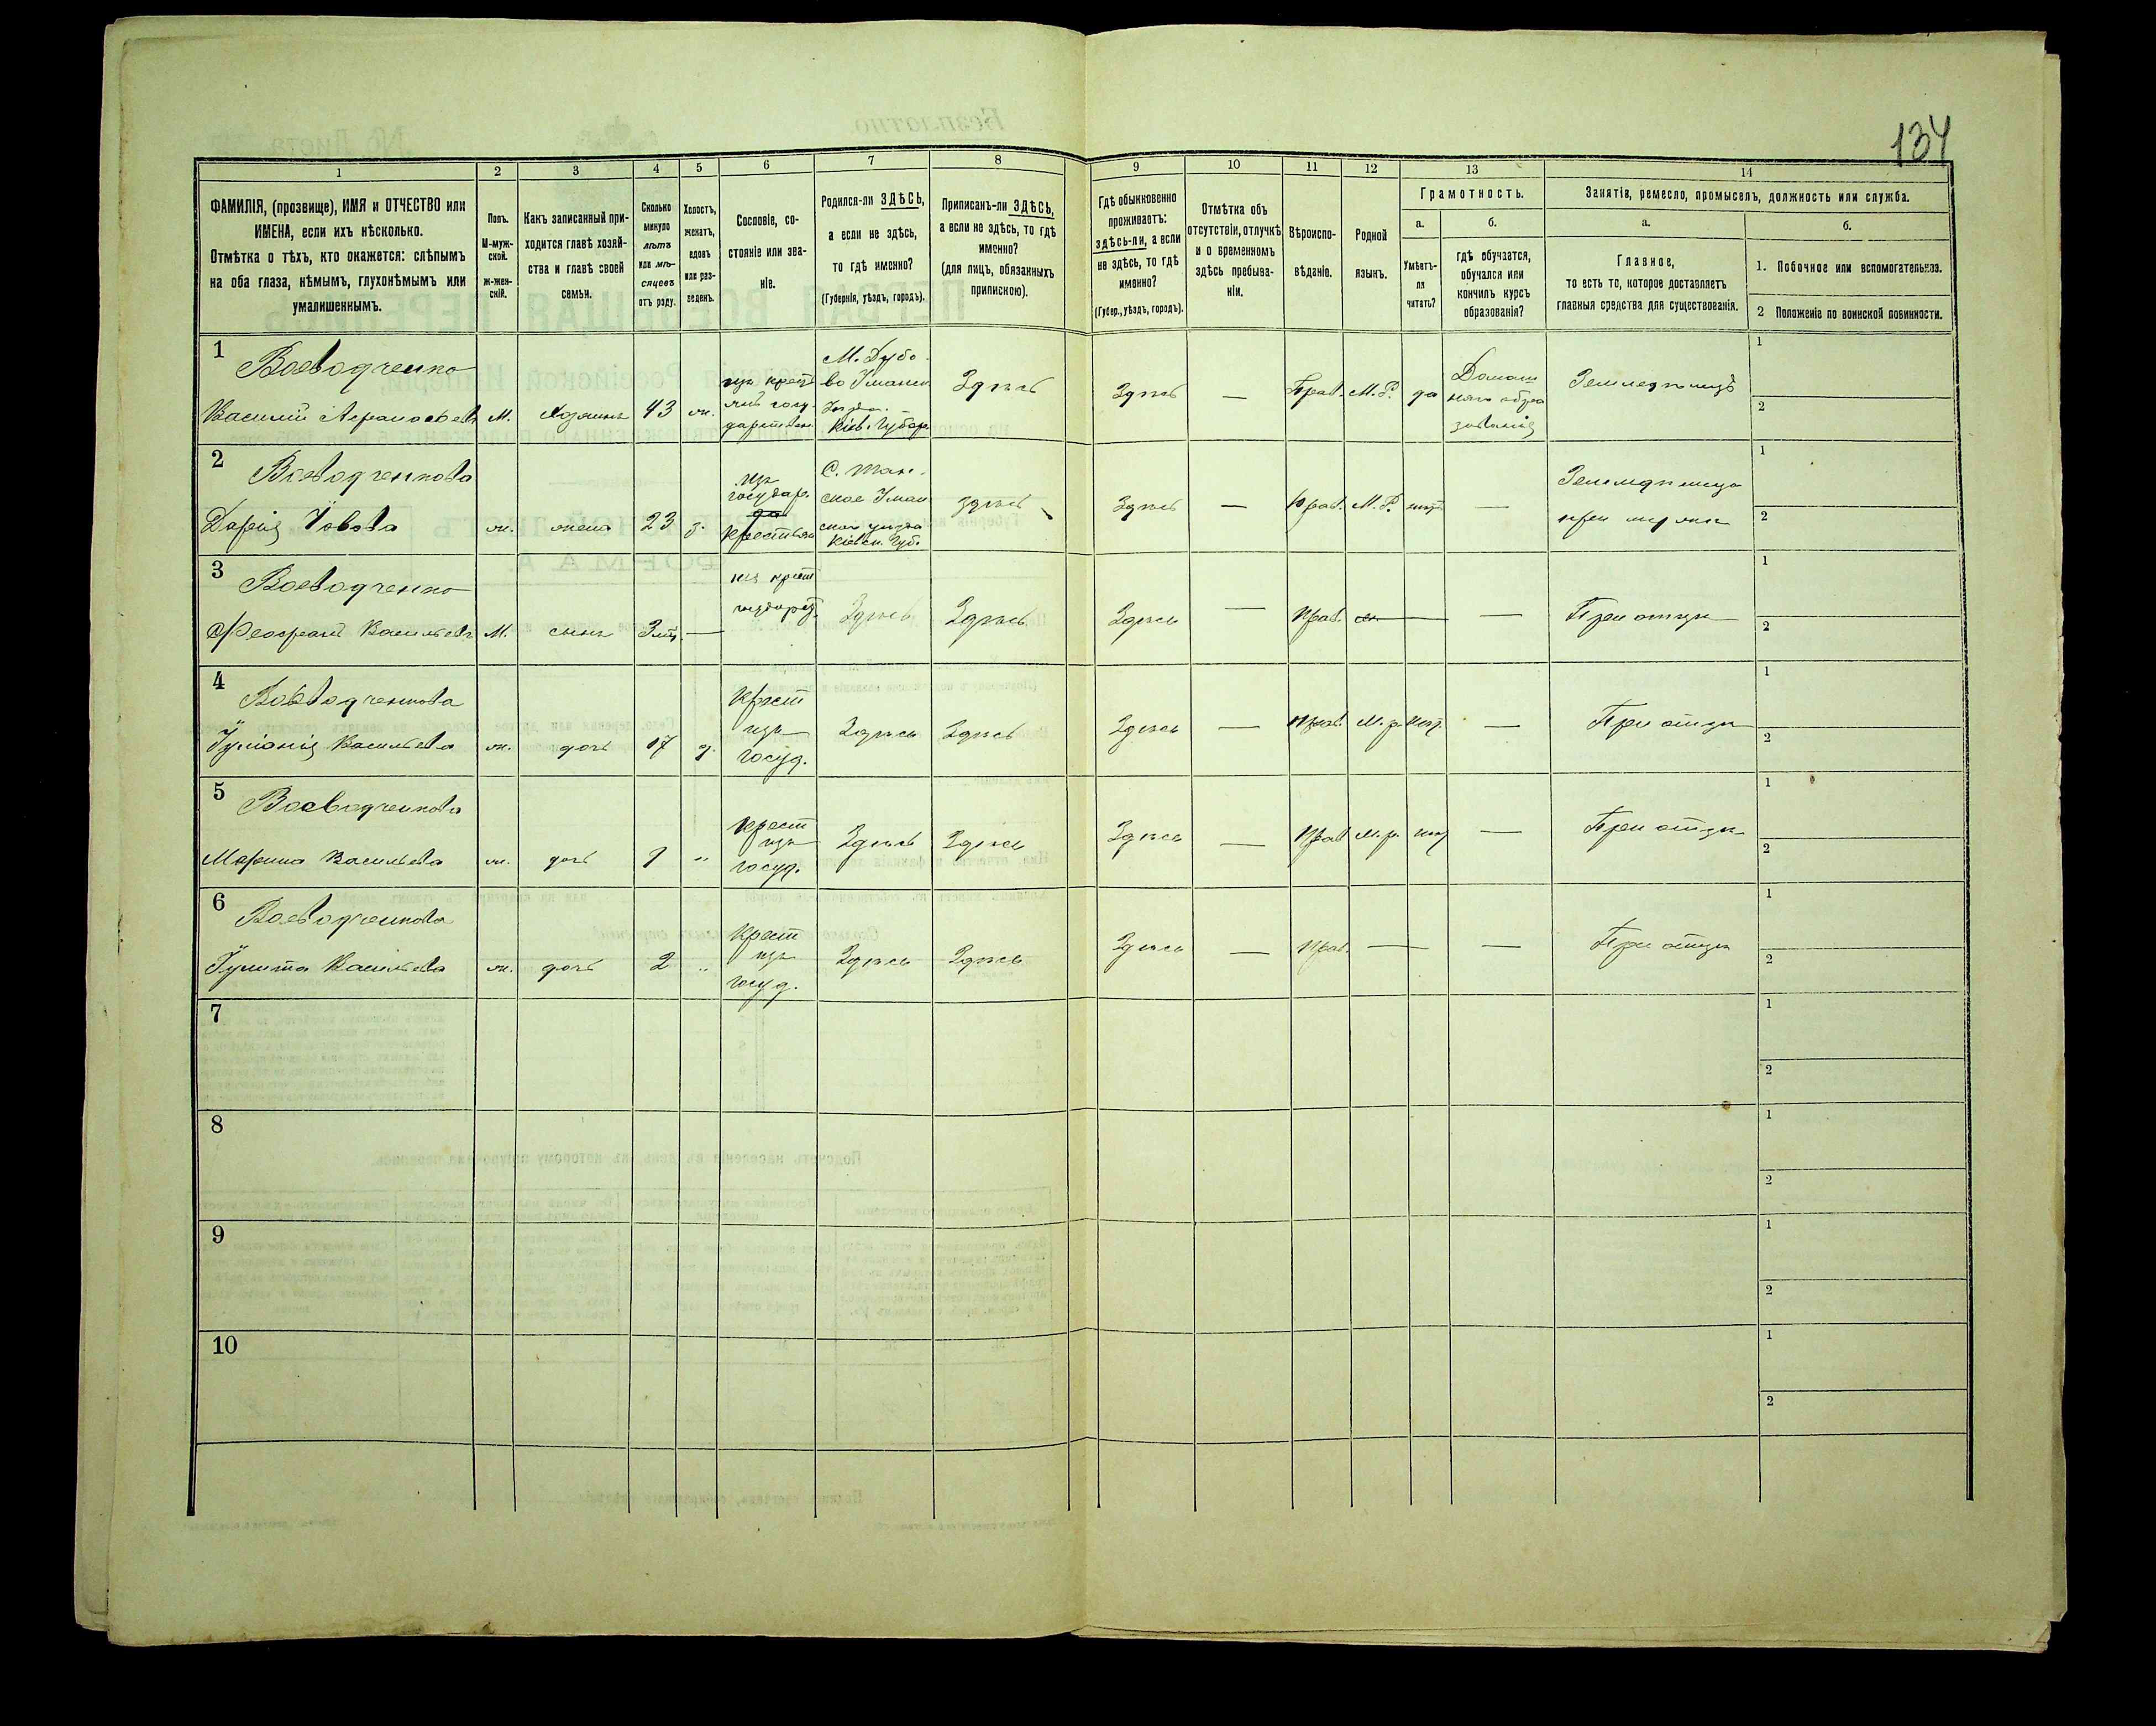 134
1
2
3
4
5
6
7
8
9
10
11
12
13
14
ФАМИЛІЯ, (прозвище), ИМЯ и ОТЧЕСТВО или
ИМЕНА, если ихъ нѣсколько.
Отмѣтка о тѣхъ, кто окажется: слѣпымъ
на оба глаза, нѣмымъ, глухонѣмымъ или
умалишеннымъ.
Полъ.
М-муж-
ской.
ж-жен-
скій.
Какъ записанный при-
ходится главѣ хозяй-
ства и главѣ своей
семьи.
Сколько
минуло
лѣтъ
или мѣ-
сяцевъ
отъ роду.
Холостъ,
женатъ,
вдовъ
или раз-
веденъ.
Сословіе, со-
стояніе или зва-
ніе.
Родился-ли ЗДѢСЬ,
а если не здѣсь,
то гдѣ именно?
(Губернія, уѣздъ, городъ).
Приписанъ-ли ЗДѢСЬ,
а если не здѣсь, то гдѣ
именно?
(для лицъ, обязанныхъ
припискою).
Гдѣ обыкновенно
проживаетъ:
здѣсь-ли, а если
не здѣсь, то гдѣ
именно?
(Губер., уѣздъ, городъ).
Отмѣтка объ
отсутствіи, отлучкѣ
и о временномъ
здѣсь пребыва-
ніи.
Вѣроиспо-
вѣданіе.
Родной
языкъ.
Грамотность.
а.
Умѣетъ-
ли
читать?
б.
гдѣ обучается,
обучался или
кончилъ курсъ
образованія?
Занятія, ремесло, промыселъ, должность или служба.
а.
Главное,
то есть то, которое доставляетъ
главныя средства для существованія.
б.
1. Побочное или вспомогательное.
2 Положеніе по воинской повинности.
1
Воеводченко
Василій М. Хозяинъ 43 ж.
изъ крест
янъ госу-
дарствен.
М. Дубо-
во Уманск
Кіев. Губер.
Здѣсь
Здѣсь — Прав. М. Р. да
Домаш
няго обра
зованія
Земледѣлецъ
1
2
2
Воеводченкова
Дарія Іовова ж. жена 23 з.
изъ
государ.
крестьян
С. Тан-
ское Уман
скаго уѣзда
Кіевск. Губ.
здѣсь
Здѣсь — Прав. М. Р. нѣтъ —
Земледѣлица
при мужѣ
1
2
3
Воеводченко
Феофанъ Васильевъ М. сынъ 3 —
изъ крест
Здѣсь Здѣсь
Здѣсь — Прав. — — При отцѣ
1
2
4
Воеводченкова
Іуліанія Васильева ж. дочь 17 д.
Крест
изъ
госуд.
Здѣсь Здѣсь
Здѣсь — Прав. М. р. нѣт. — При отцѣ
1
2
5
Воеводченкова
Марина Васильева ж. дочь "
Крест
изъ
госуд.
Здѣсь Здѣсь
Здѣсь — Прав М. р. нѣт — При отцѣ
1
2
6
Воеводченкова
Іулита Васильева ж. дочь 2 "
Крест
изъ
госуд.
Здѣсь Здѣсь
Здѣсь — Прав. — — При отцѣ
1
2
7
1
2
8
1
2
9
1
2
10
1
2